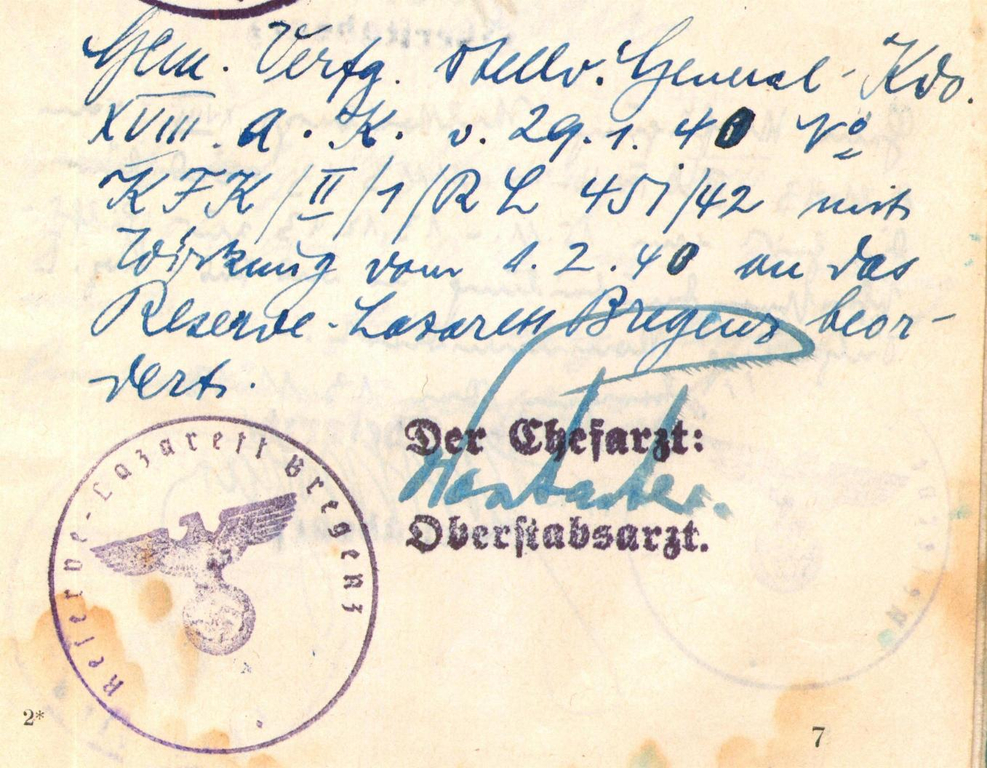 Gem. Verfg. Stellv. General-Kdo.
XVIII. A. K. v. 29.1.40 No
KFK/II/1/RL 451/42 mit
Wirkung vom 1.2.40 an das
Reserve-Lazarett Bregenz beor-
dert.
Der Chefarzt:
Oberstabsarzt.
Reserve-Lazarett Bregenz
2*
7